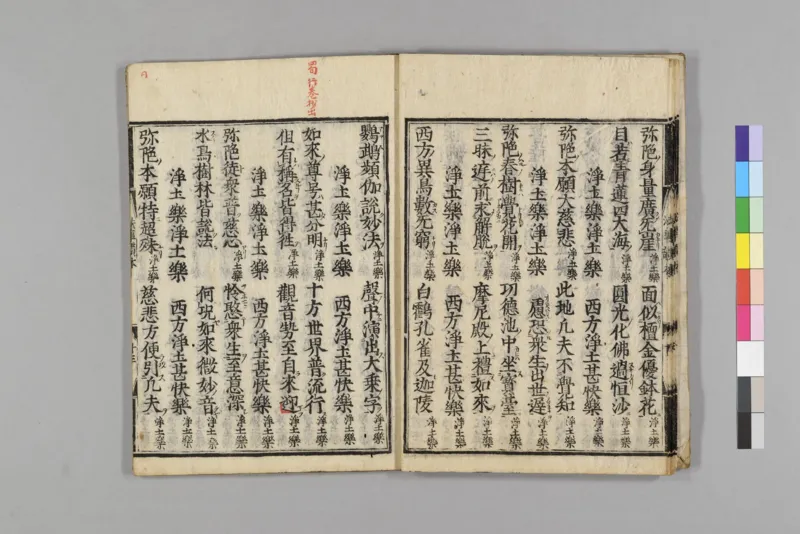 弥陁身量廣无崖 淨土樂 面似檀金優鉢花 淨土樂
目若青蓮四大海 淨土樂 圓光化佛遍恒沙 淨土樂
淨土樂淨土樂 西方淨土甚快樂
弥陁本願大慈悲 淨土樂 此地凡夫不覺知 淨土樂
淨土樂淨土樂 恐衆生出世遅 淨土樂
弥陁春樹覺花開 淨土樂 功德池中坐寶臺 淨土樂
三昧迊前求解脱 淨土樂 摩尼殿上禮如來 淨土樂
淨土樂淨土樂 西方淨土甚快樂
西方異鳥數无窮 淨土樂 白鶴孔雀及迦陵 淨土樂
鸚鵡頻伽說妙法 淨土樂 聲中演出大乘字 淨土樂
淨土樂淨土樂 西方淨土甚快樂
如來尊号甚分明 淨土樂 十方世界普流行 淨土樂
但有稱名皆得往 淨土樂 觀音勢至自來迎 淨土樂
淨土樂淨土樂 西方淨土甚快樂
弥陁徒衆普慈心 淨土樂 怜愍衆生至意深 淨土樂
水鳥樹林皆說法 淨土樂 何況如來微妙音 淨土樂
淨土樂淨土樂 西方淨土甚快樂
弥陁本願特超殊 淨土樂 慈悲方便引凡夫 淨土樂